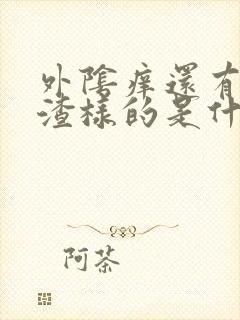 外陰痒還有
渣樣的是什
阿茶